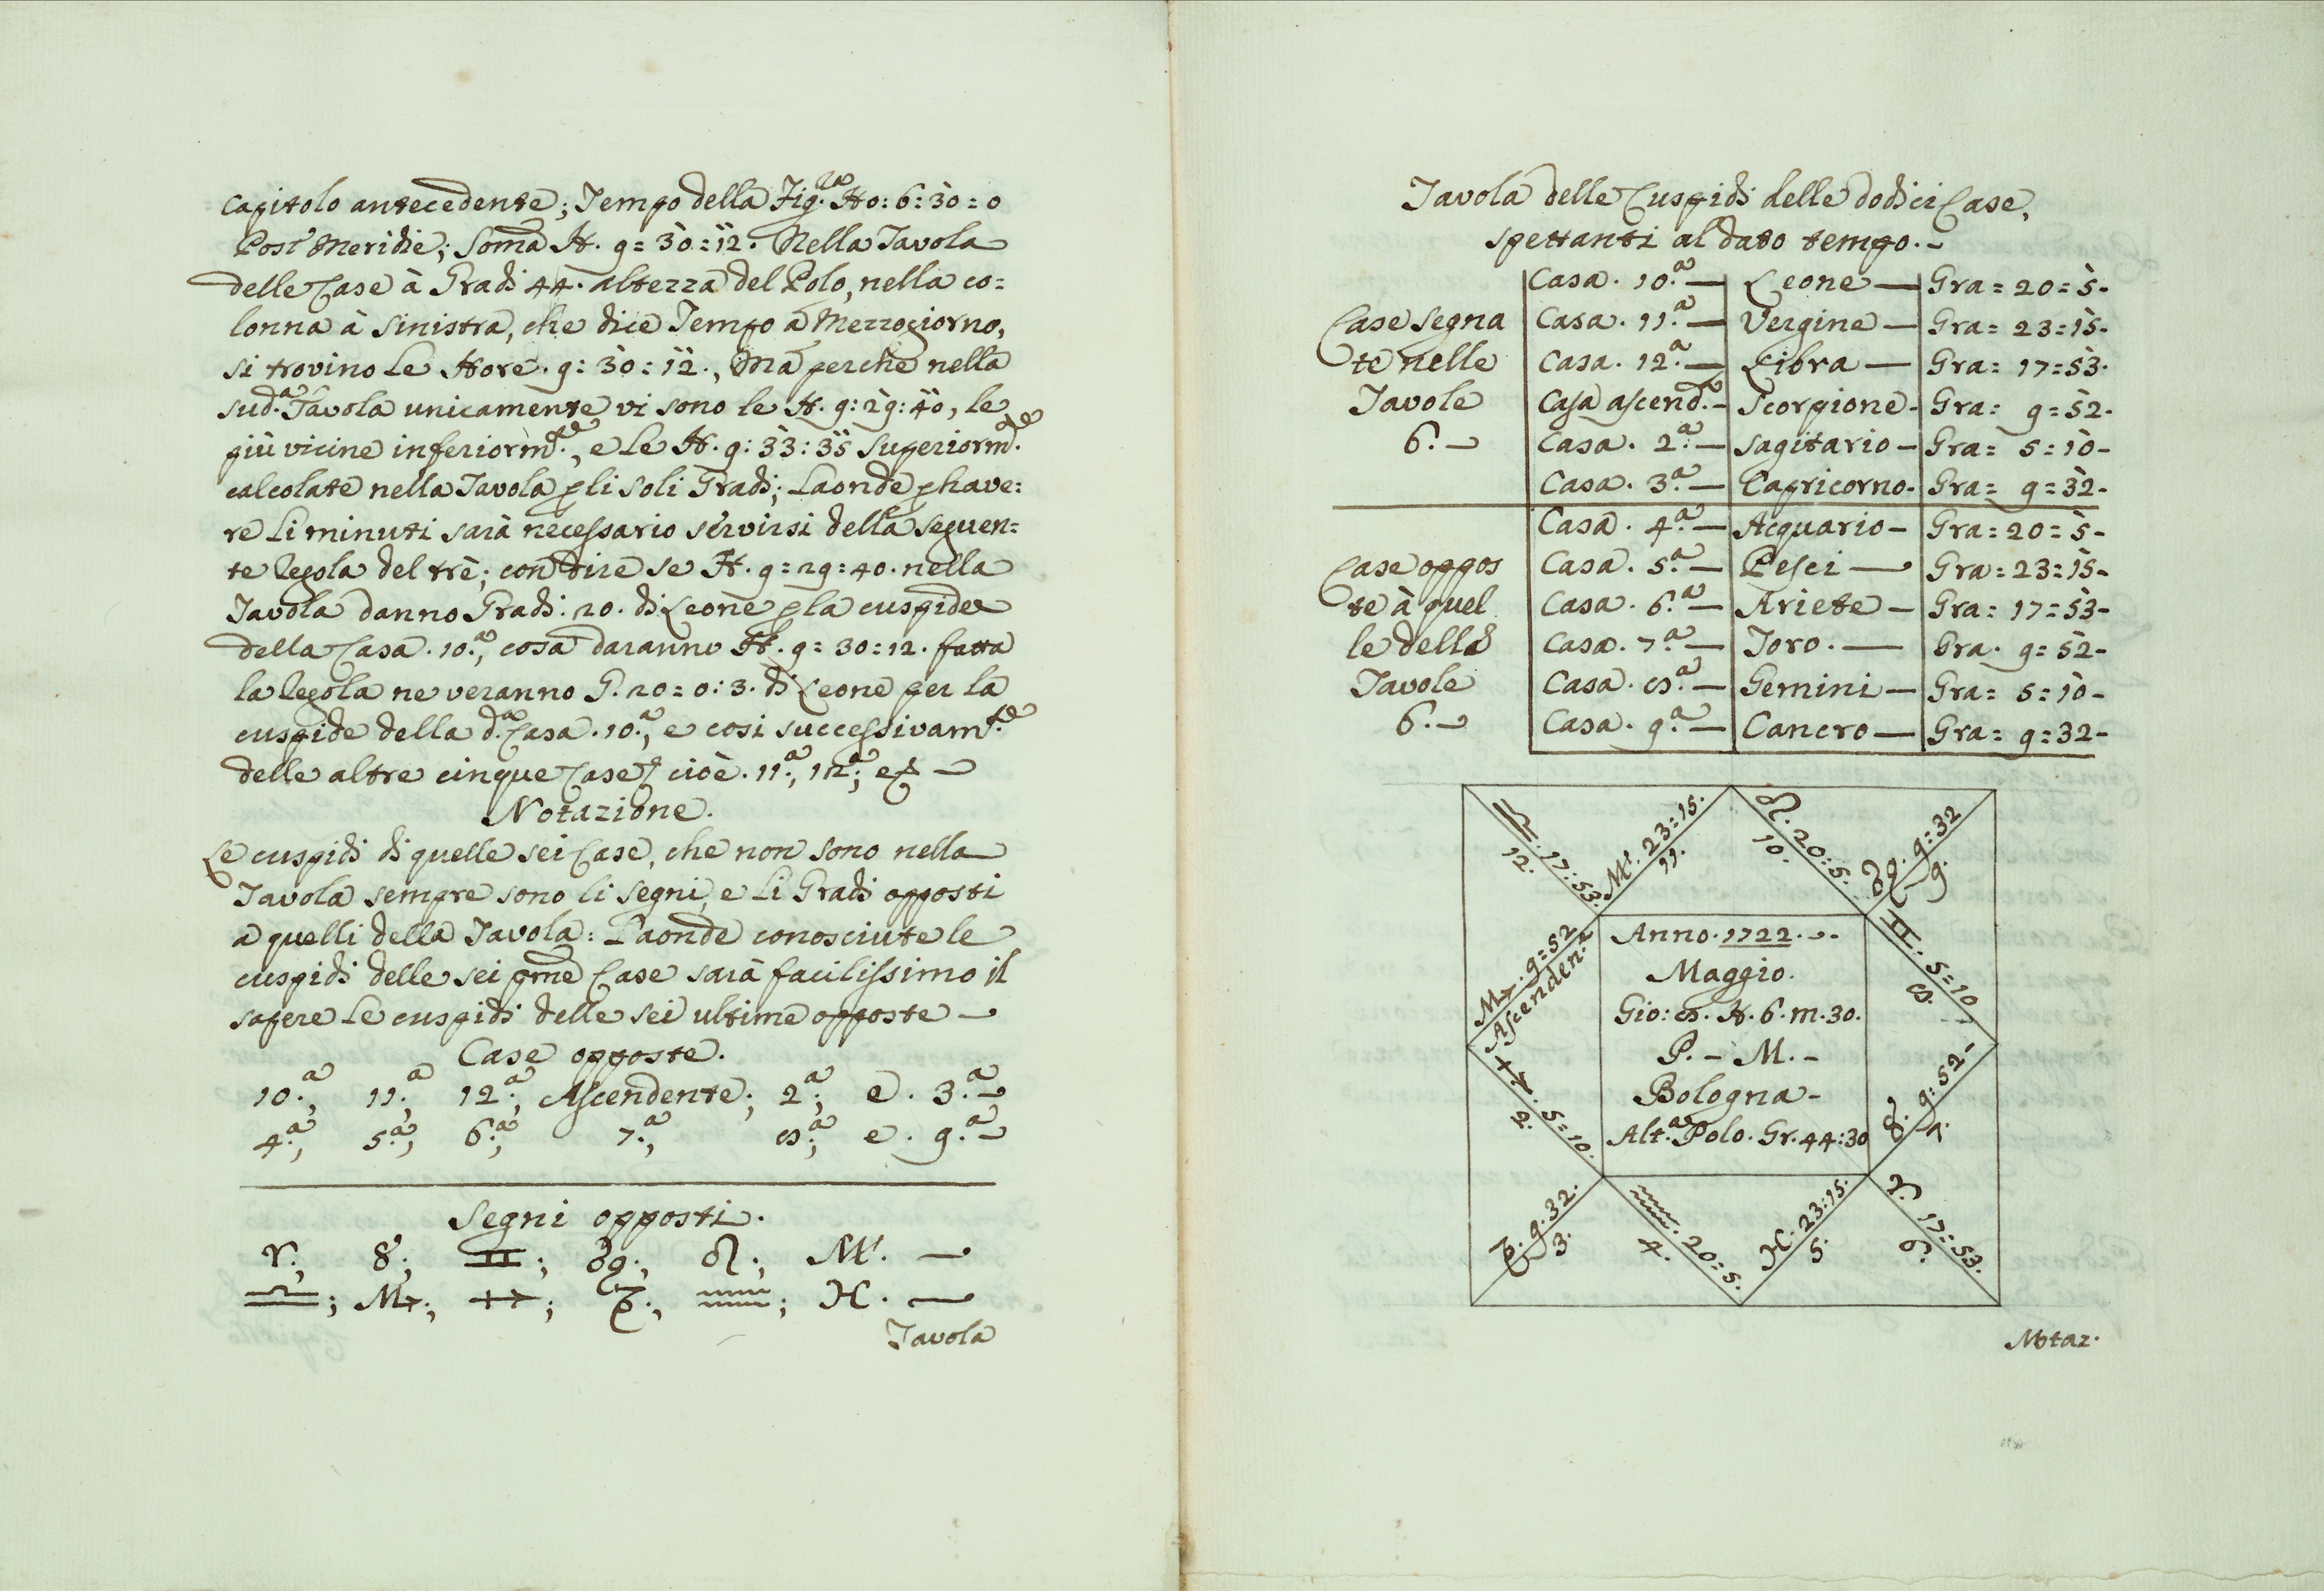 capitolo antecedente; Tempo della Fig.ra Ho: 6: 30 = 0
Post Meridie; Soma H. 9 = 30 = 12. Nella Tavola
delle Case à Gradi 44. altezza del Polo, nella co=
lonna à Sinistra, che dice Tempo à Mezzogiorno,
si trovino Le Hore. 9: 30: 12., Ma perche nella
sud.a Tavola unicamente vi sono le H. 9: 29: 40, le
più vicine inferiorm.te, e Le H. 9: 33: 35 Superiorm.te
calcolate nella Tavola p li soli Gradi; Laonde p have:
re Li minuti sarà necessario servirsi della seguen=
te Regola del trè; con dire se H. 9 = 29: 40. nella
Tavola danno Gradi: 20. di Leone p la cuspide
della Casa. 10.a, cosa daranno H. 9 = 30: 12. fatta
la Regola ne veranno G. 20 = 0: 3. di Leone per la
cuspide della d.a Casa. 10.a, e cosi successivam.te
delle altre cinque Case, cioè. 11.a, 12.a; &
Notazione.
Le cuspidi di quelle sei Case, che non sono nella
Tavola sempre sono li segni, e Li Gradi opposti
a quelli della Tavola: Laonde conosciute le
cuspidi delle sei pme Case sarà facilissimo il
sapere Le cuspidi delle sei ultime opposte
Case opposte.
10.a, 11.a, 12.a, Ascendente; 2.a; e. 3.a
4.a, 5.a, 6.a, 7.a, 8.a; e. 9.a
Segni opposti.
♈.; ♉; ♊; ♋.; ♌.; ♍.
♎; ♏.; ♐; ♑.; ♒; ♓.
Tavola
Tavola delle Cuspidi delle dodici Case,
spettanti al dato tempo.
Case segna
te nelle
Tavole
6.
Casa. 10.a — Leone — Gra = 20 = 5
Casa. 11.a — Vergine — Gra = 23 = 15
Casa. 12.a — Libra — Gra = 17 = 53
Casa ascend.te Scorpione Gra = 9 = 52
Casa. 2.a — Sagitario — Gra = 5 = 10
Casa. 3.a — Capricorno Gra = 9 = 32
Case oppos
te à quel
le delle
Tavole
6.
Casa. 4.a — Acquario — Gra = 20 = 5
Casa. 5.a — Pesci — Gra = 23 = 15
Casa. 6.a — Ariete — Gra = 17 = 53
Casa. 7.a — Toro. — Gra. 9 = 52
Casa. 8.a — Gemini — Gra = 5 = 10
Casa. 9.a — Cancro — Gra = 9 = 32
♎. 17: 53.
12.
♍. 23 = 15.
11.
♌. 20: 5.
10.
♋. 9: 32
9.
♏. 9 = 52
Ascenden.te
♊. 5 = 10
8.
Anno. 1722.
Maggio.
Gio: 8. H. 6. m. 30.
P. — M. —
Bologna
Alt.a Polo. Gr. 44: 30
♐. 5 = 10.
2.
♉. 9: 52
7.
♑. 9: 32.
3.
♒. 20 = 5.
4.
♓. 23: 15.
5.
♈. 17 = 53.
6.
Notaz.